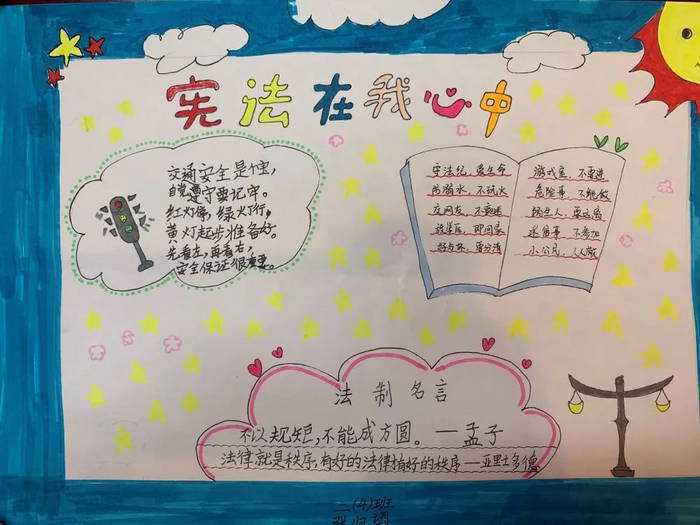 宪法在我心中
交通安全是个宝,
自觉遵守要记牢。
红灯停,绿灯行,
黄灯起步准备好。
先看左,再看右,
安全保证很重要。
守法纪,爱生命
防溺水,不玩火
交网友,不痴迷
放学后,即回家
好与坏,要分清
游戏室,不要进
危险事,不能做
陌生人,要远离
迷信事,不参加
小公民,人人做
法制名言
不以规矩,不能成方圆。—孟子
法律就是秩序,有好的法律才有好的秩序—亚里士多德
二(4)班